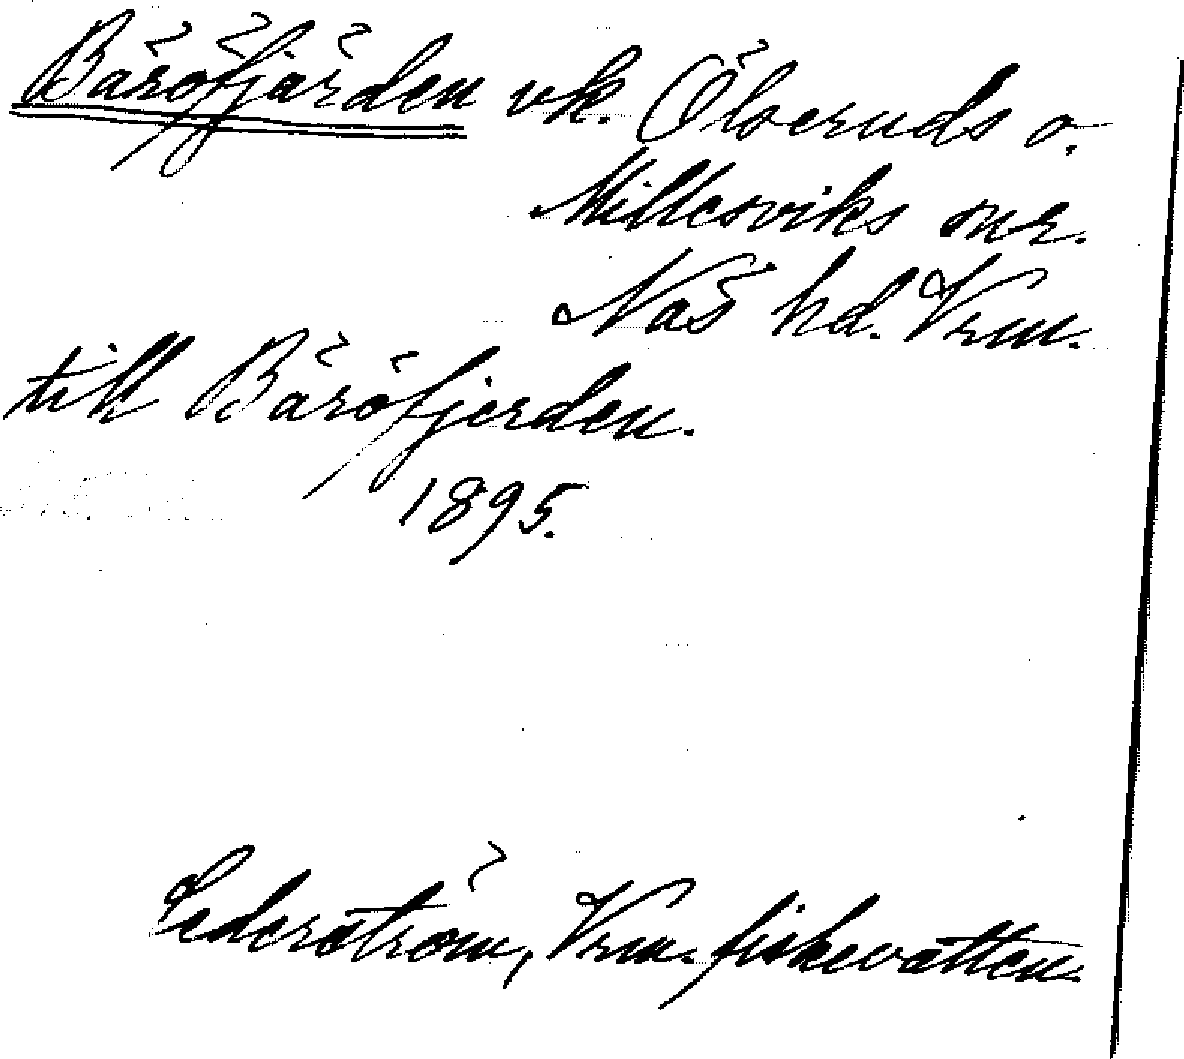 Bäröfjärden vk. Ölseruds o.
Millesviks snr.
Näs hd. Vrm.
till Bäröfjerden.
1895.
Cederström, Vrm. fiskevatten.